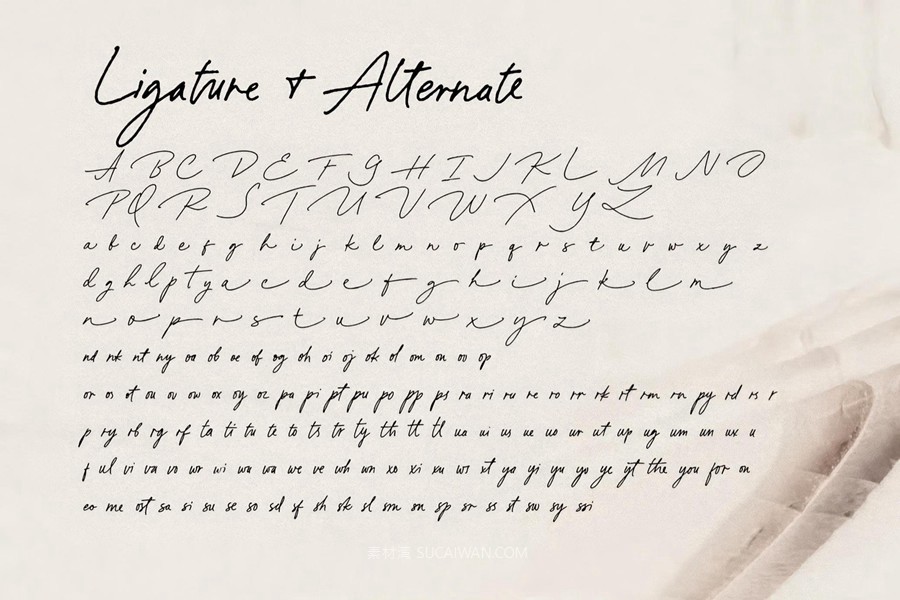 Ligature + Alternate
A B C D E F G H I J K L M N O
P Q R S T U V W X Y Z
a b c d e f g h i j k l m n o p q r s t u v w x y z
d g h l p t y a c d e f g h i j k l m
n o p r s t u v w x y z
nd nk nt ny oa ob oe of og oh oi oj ok ol om on oo op
or os ot ou ov ow ox oy oz pa pi pt pu po pp ps ra ri ru re ro rr rk rt rm rn py rd rs r
p ry rb rg rf ta ti tu te to ts tr ty th tt tl ua ui us ue uo ur ut up ug um un ux u
f ul vi va vo wr wi wu wa we ve wh wn xo xi xu ws xt ya yi yu yo ye yt the you for on
eo me ost sa si su se so sd sf sh sk sl sm sn sp sr ss st sw sy ssi
素材湾 SUCAIWAN.COM